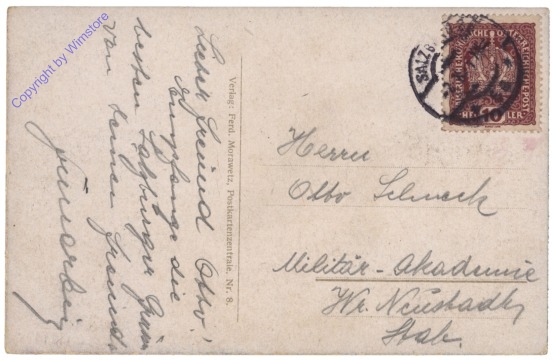 Copyright by Wimstore
Lieber Freund Otto!
Empfange die
besten Salzburger Grüße
von deinem Freunde
Verlag: Ferd. Morawetz, Postkartenzentrale. Nr. 8.
SALZB
KAISERLICHE KÖNIGLICHE ÖSTERREICHISCHE POST
10
HELLER
Herrn
Otto
Militär-Akademie
Wr. Neustadt